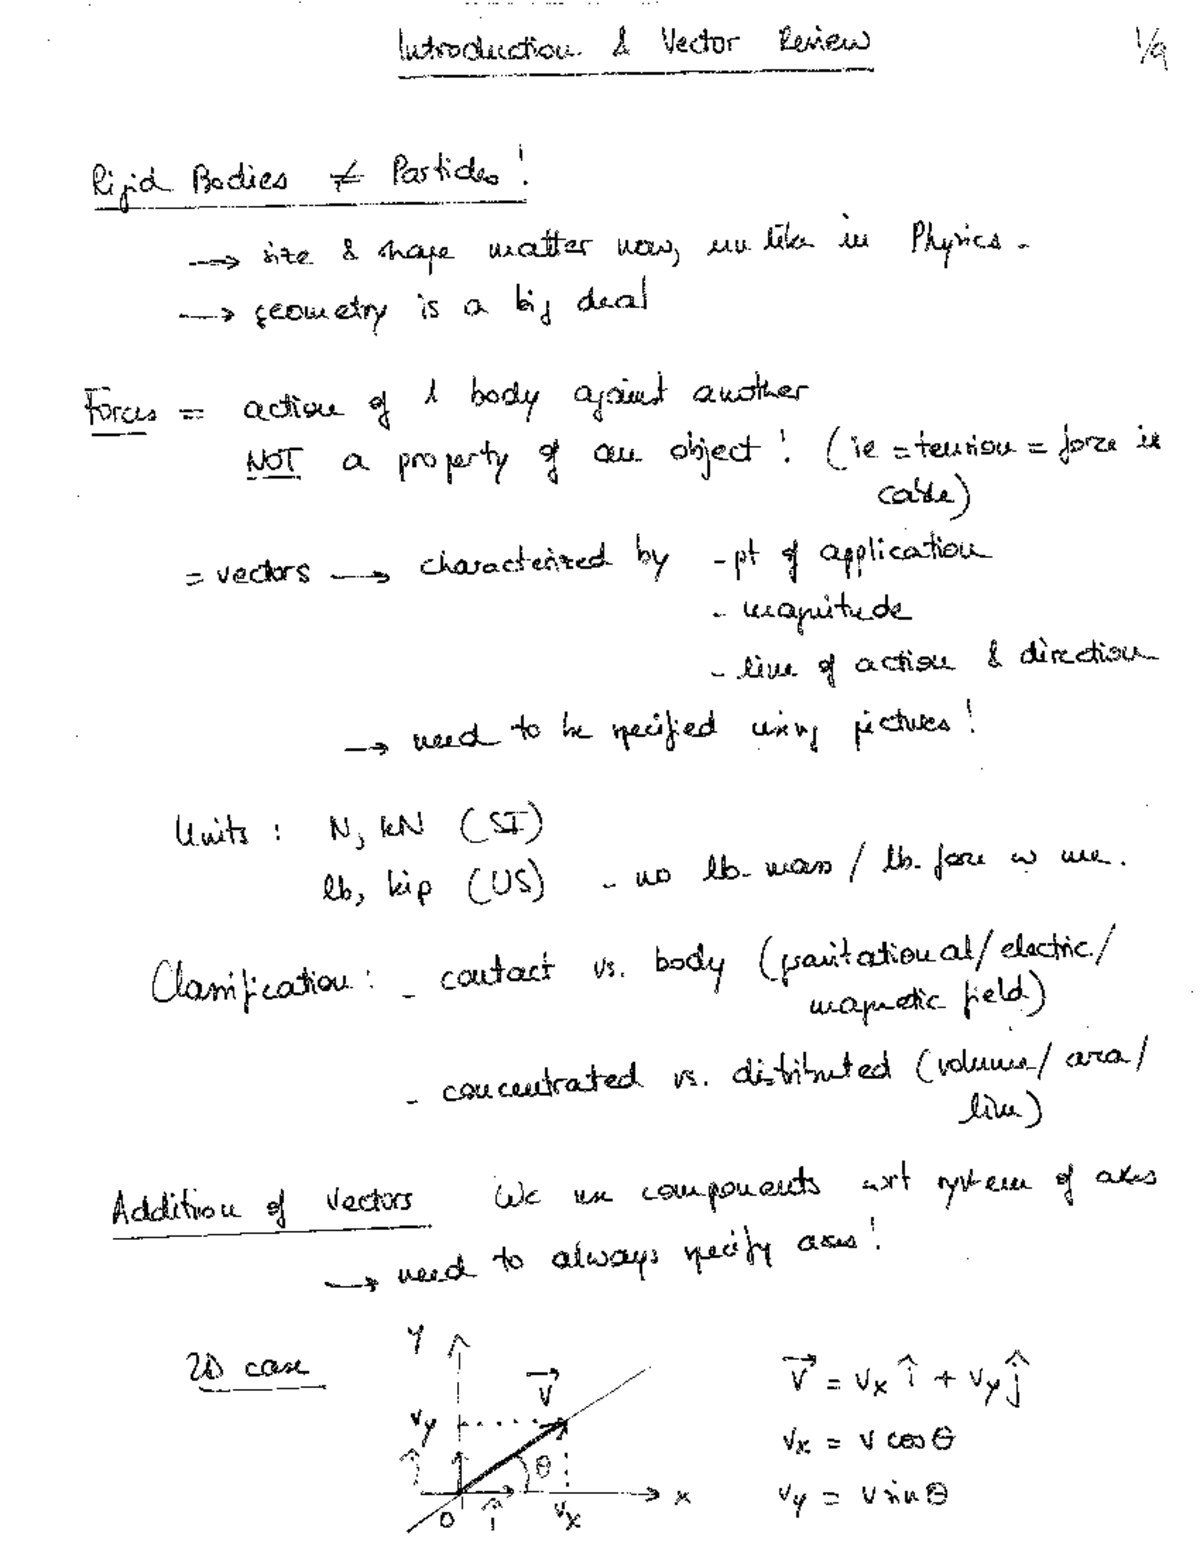 Introduction & Vector Review
1/9
Rigid Bodies ≠ Particles!
→ size & shape matter now, unlike in Physics.
→ geometry is a big deal
Forces = action of 1 body against another
NOT a property of an object! (ie = tension = force in
cable)
= vectors → characterized by - pt of application
- magnitude
- line of action & direction
→ need to be specified using pictures!
Units : N, kN (SI)
lb, kip (US) - no lb-mass / lb-force w me.
Classification : - contact vs. body (gravitational/electric/
magnetic field)
- concentrated vs. distributed (volume/area/
line)
Addition of Vectors We use components wrt system of axes
→ need to always specify axes!
2D case
y
V⃗
vy
ĵ
θ
O
î
vx
x
V⃗ = vx î + vy ĵ
vx = v cos θ
vy = v sin θ